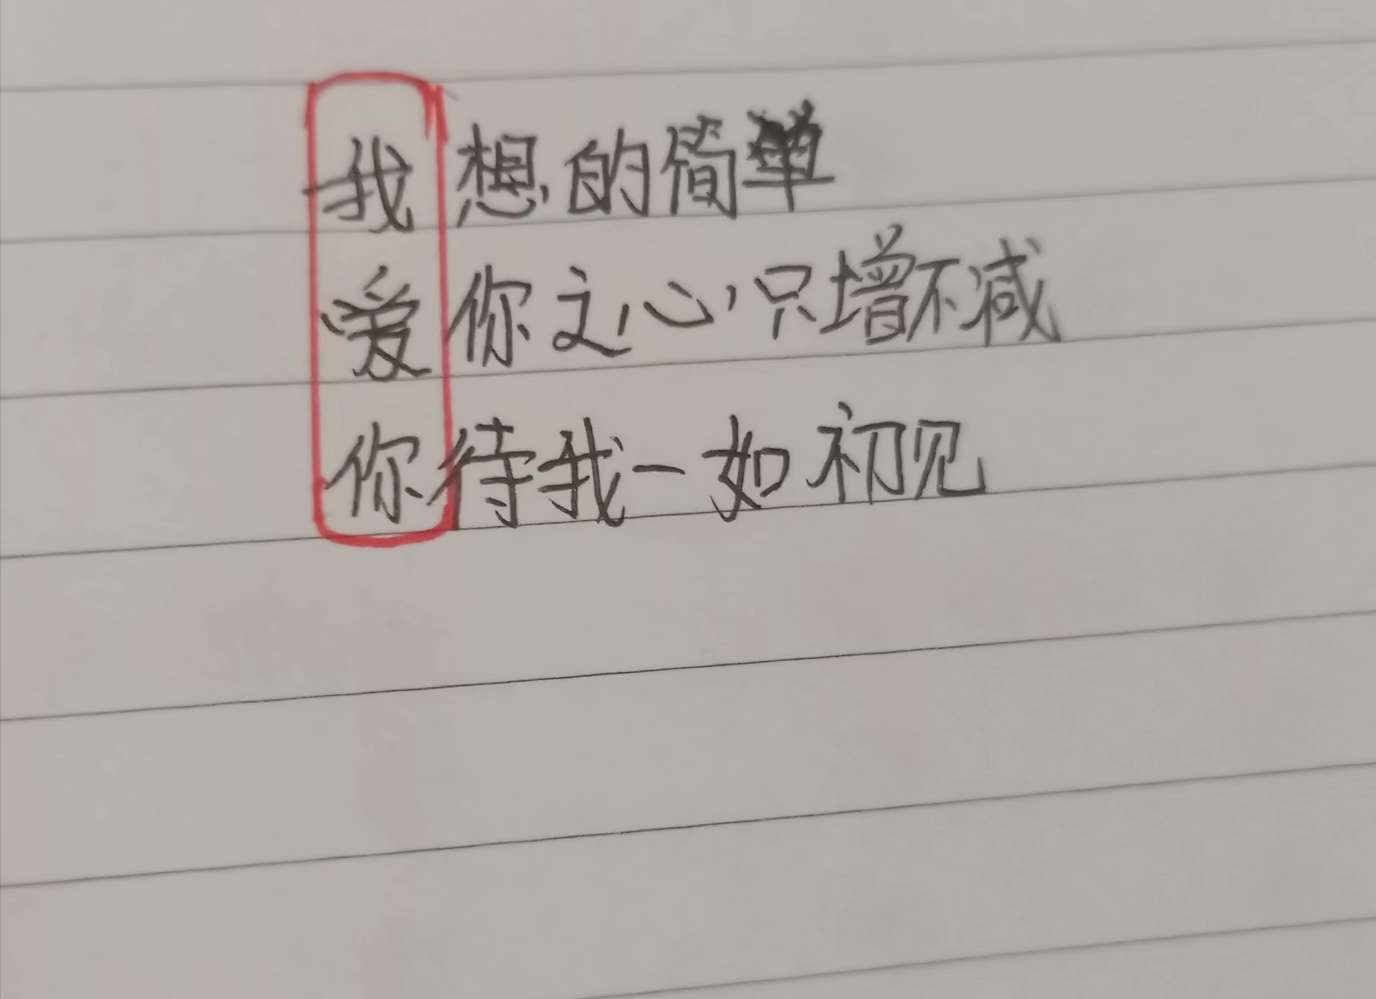 我想的简单
爱你之心,只增不减
你待我一如初见